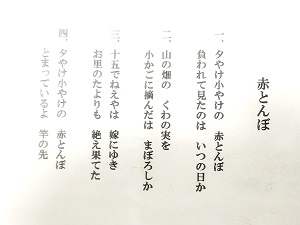 赤とんぼ
一、夕やけ小やけの 赤とんぼ
負われて見たのは いつの日か
二、山の畑の くわの実を
小かごに摘んだは まぼろしか
三、十五でねえやは 嫁にゆき
お里のたよりも 絶え果てた
四、夕やけ小やけの 赤とんぼ
とまっているよ 竿の先